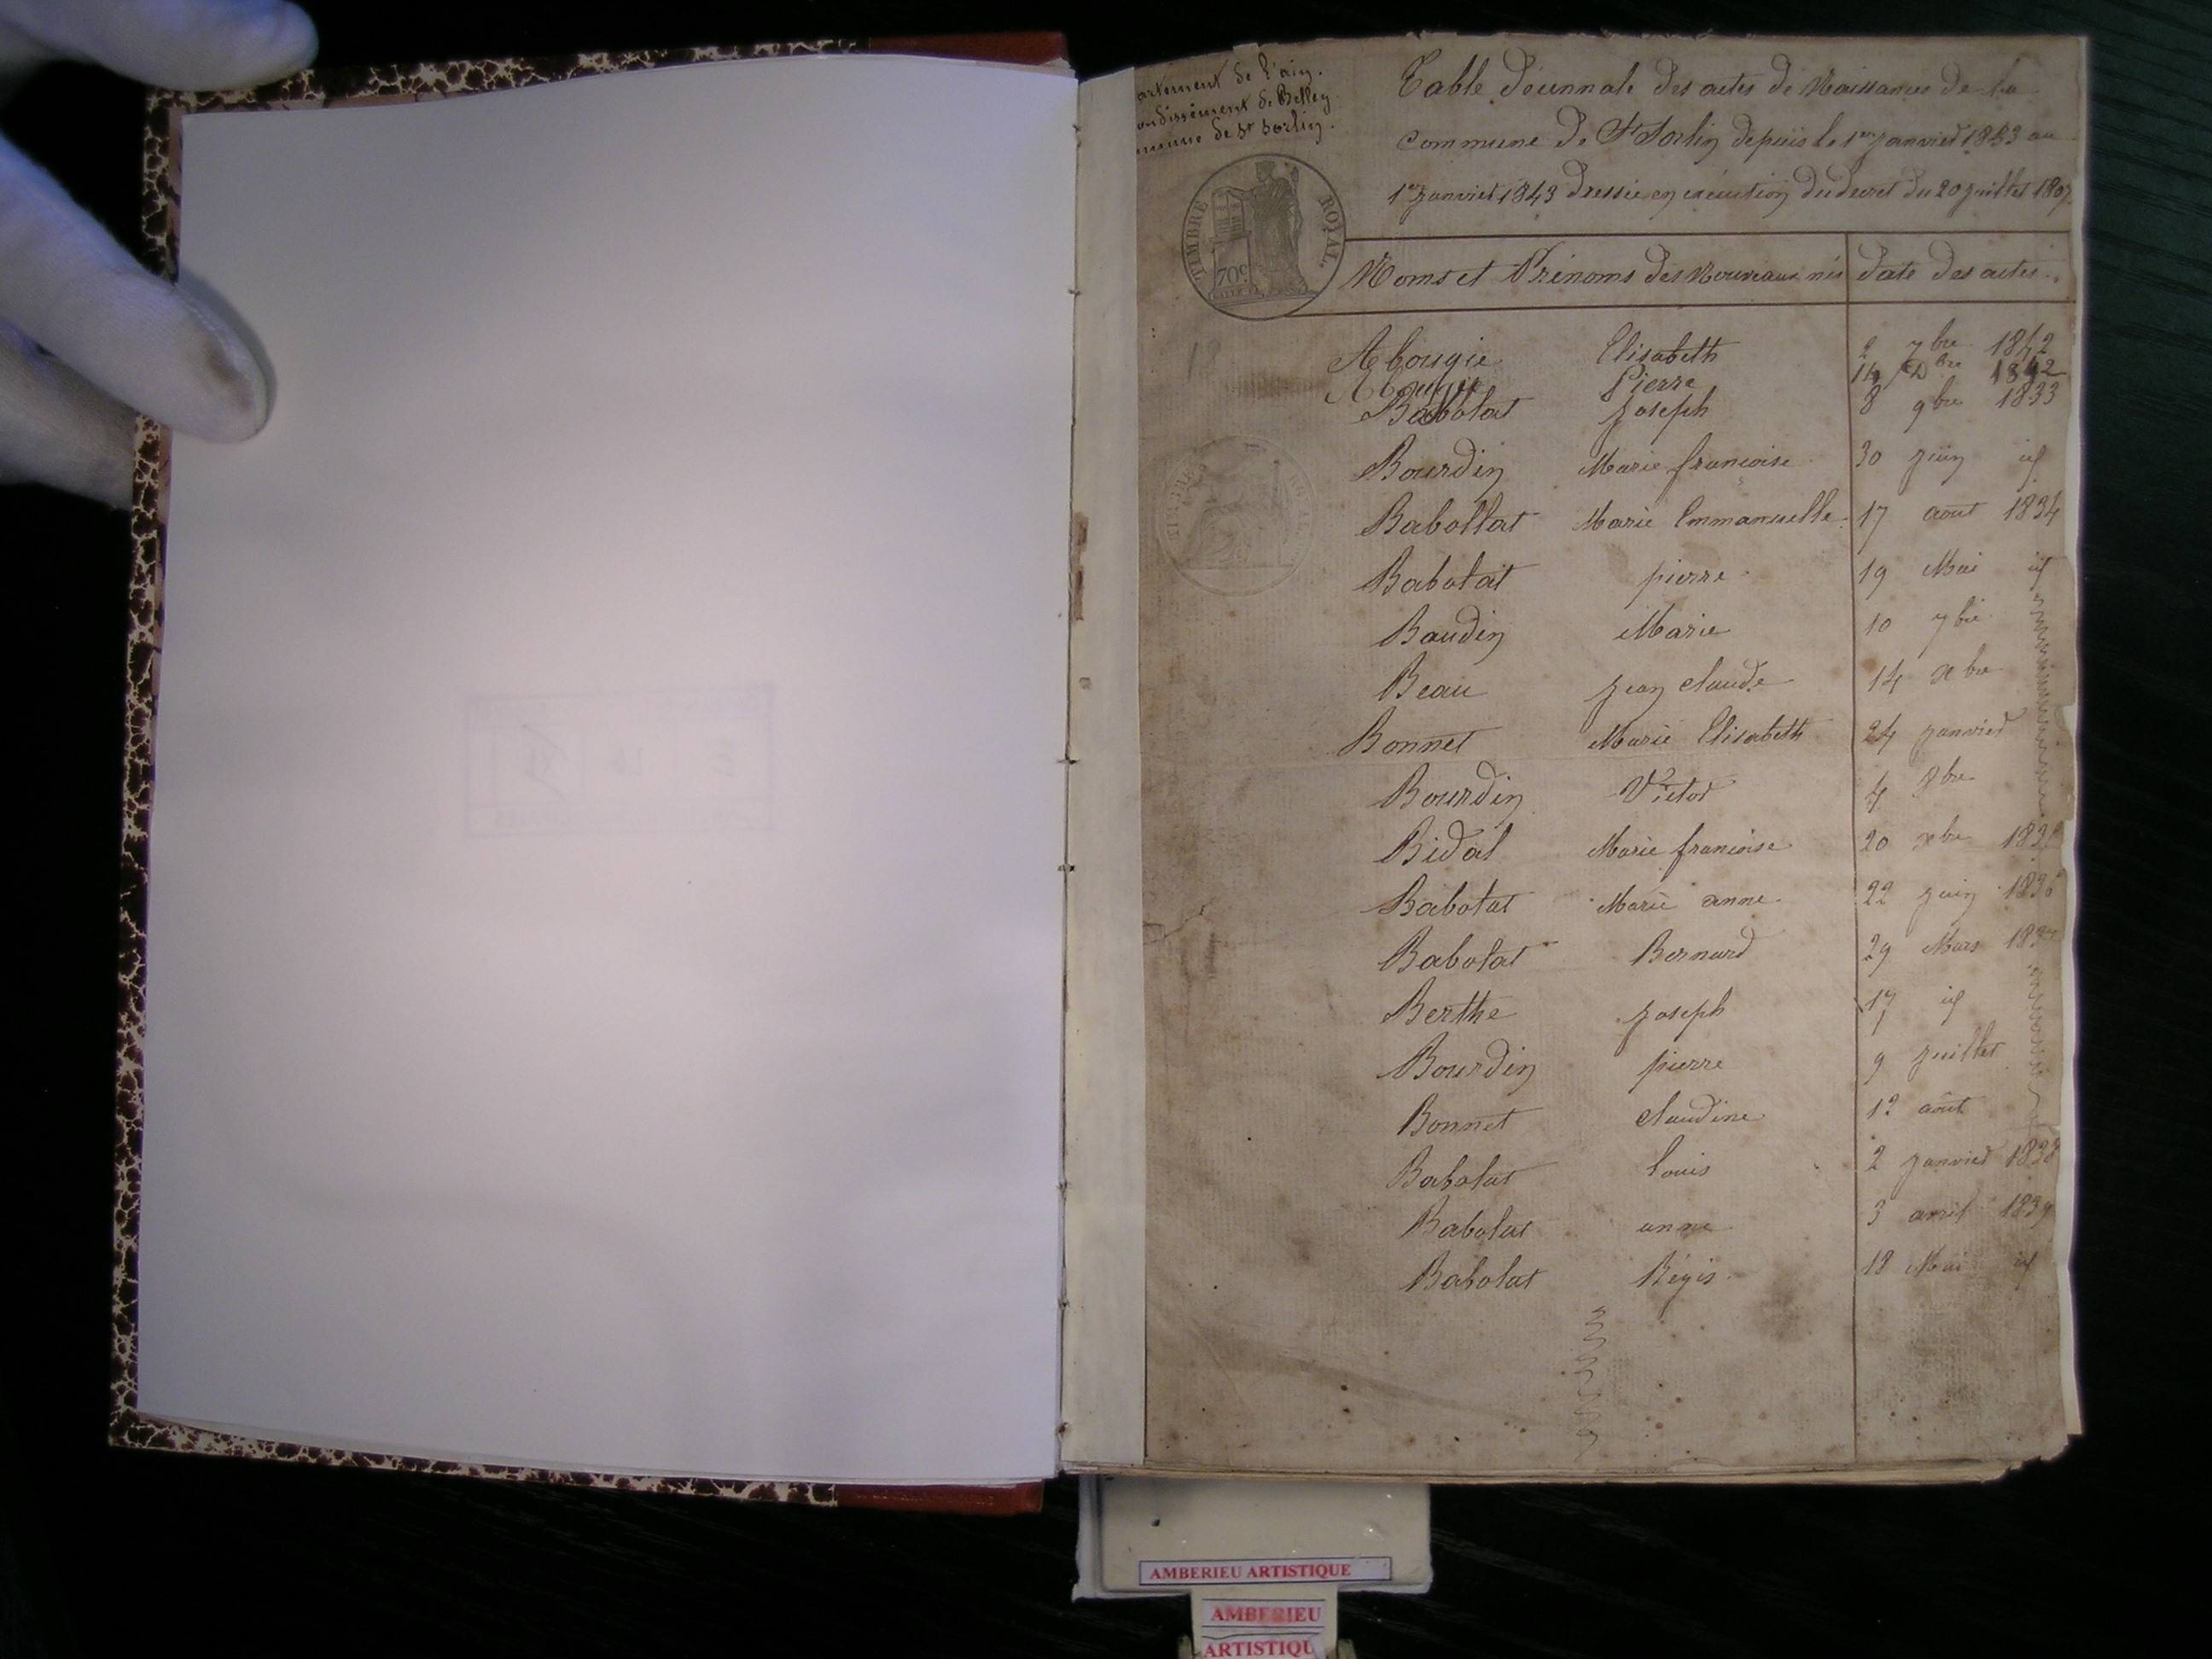 artement de l'ain.
ondissement de Belley
mune de St Sorlin.
Table décennale des actes de Naissances de la
commune de St Sorlin depuis le 1er janvier 1833 au
1er janvier 1843 dressée en exécution du decret du 20 juillet 1807.
TIMBRE ROYAL.
70c
Noms et Prénoms des Nouveaux nés date des actes.
Abougie Elisabeth 2 7bre 1842
Abougie Pierre 14 Xbre 1842
Babolat joseph 8 9bre 1833
Bourdin Marie francoise 30 juin id
Babollat Marie Emmanuelle 17 aout 1834
Babolat pierre 19 Mai id
Baudin Marie 10 7bre
Beau jean claude 14 xbre
Bonnet Marie Elisabeth 24 janvier
Bourdin Victor 4 8bre
Bidal Marie francoise 20 xbre
Babolat Marie anne 22 juin 1836
Babolat Bernard 29 Mars
Berthe joseph 17 id
Bourdin pierre 9 juillet
Bonnet claudine 12 août
Babolat Louis 2 janvier 1838
Babolat anne 3 avril 1839
Babolat Régis 18 Mai id
AMBERIEU ARTISTIQUE
AMBERIEU
ARTISTIQU